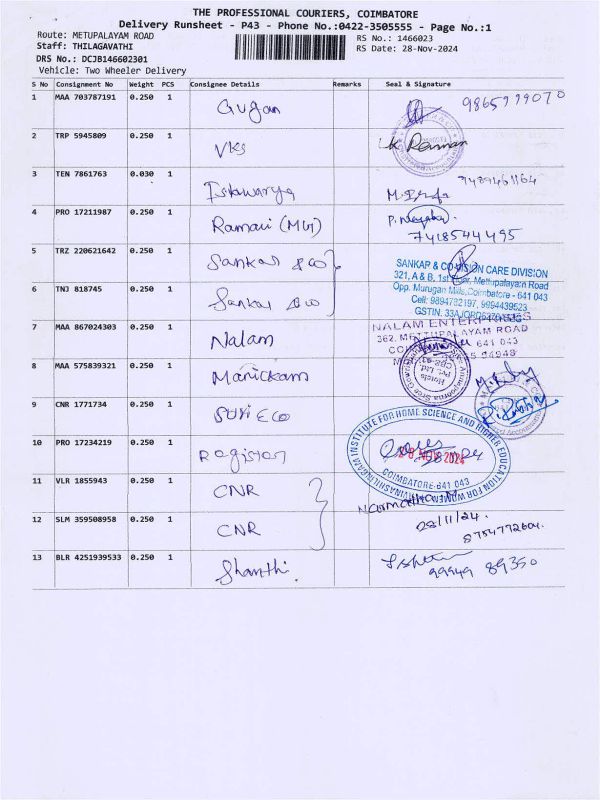 THE PROFESSIONAL COURIERS, COIMBATORE
Delivery Runsheet - P43 - Phone No.:0422-3505555 - Page No.:1
Route: METUPALAYAM ROAD
Staff: THILAGAVATHI
DRS No.: DCJB146602301
Vehicle: Two Wheeler Delivery
RS No.: 1466023
RS Date: 28-Nov-2024
S No Consignment No Weight PCS Consignee Details Remarks Seal & Signature
1 MAA 703787191 0.250 1 Gugan
2 TRP 5945809 0.250 1 VKS
3 TEN 7861763 0.030 1 Iswarya 9489461164
4 PRO 17211987 0.250 1 Ramani (MGT) 7418544495
5 TRZ 220621642 0.250 1 Sankar & co
6 TNJ 818745 0.250 1 Sankar & co
SANKAR & CO VISION CARE DIVISION
321, A & B, 1st Floor, Mettupalayam Road
Opp. Murugan Mills, Coimbatore - 641 043
Cell: 9894782197, 9994439523
GSTIN: 33AJOPD
7 MAA 867024303 0.250 1 Nalam
NALAM ENTERPRISES
362, METTUPALAYAM ROAD
641 043
94948
8 MAA 575839321 0.250 1 Manickam
9 CNR 1771734 0.250 1 SUN ECO
10 PRO 17234219 0.250 1 Register
INSTITUTE FOR HOME SCIENCE AND HIGHER EDUCATION FOR WOMEN
COIMBATORE-641 043
11 VLR 1855943 0.250 1 CNR
12 SLM 359508958 0.250 1 CNR
28/11/24.
8754772604.
13 BLR 4251939533 0.250 1 Shanthi.
99949 89350